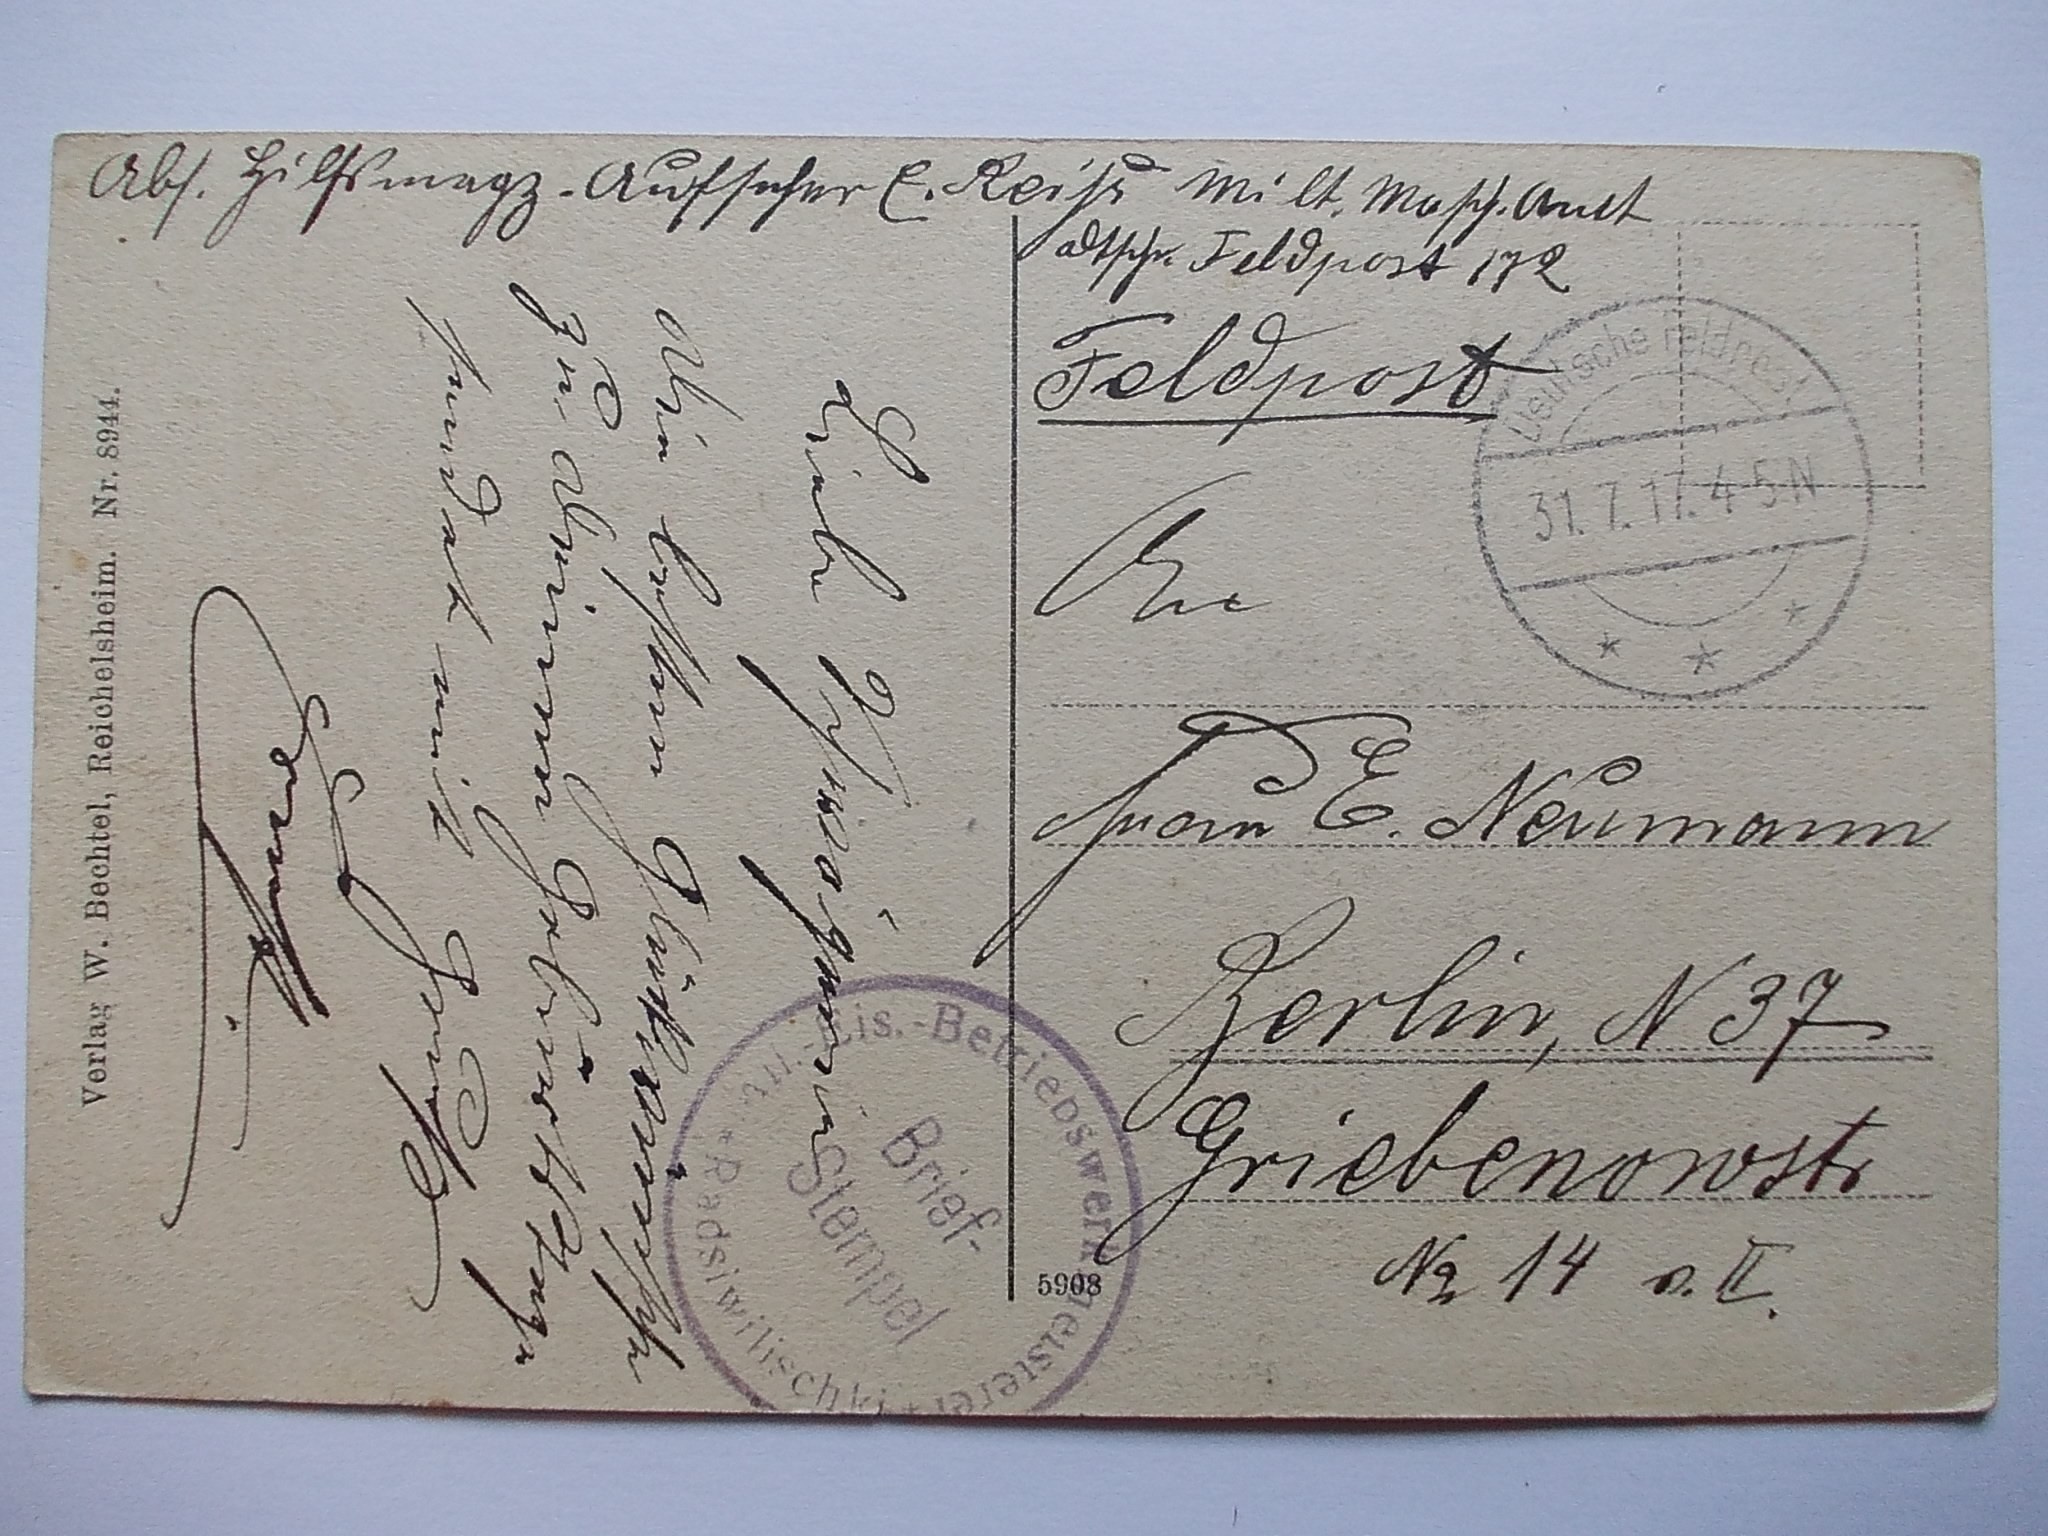 Abs. Hilfsmagz.-Aufseher E. Reiss Milt. Masch. Amt
dtsche. Feldpost 172
Feldpost
Deutsche Feldpost
31.7.17. 4-5 N
An
Frau E. Neumann
Berlin, N 37
Griebenowstr
No 14 v. II.
Liebe Schwägerin
Die besten Glückwünsche
zu Deinem Geburtstage
sendet mit
Gruß
Verlag W. Bechtel, Reichelsheim. Nr. 8944.
5908
Mil.-Eis.-Betriebswerkmeisterei
* Radsiwilischki *
Brief-
Stempel